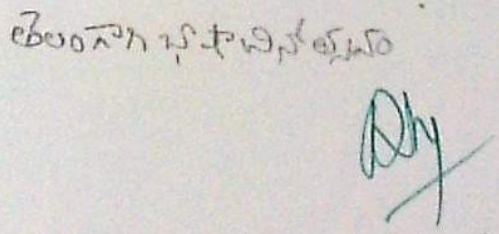 తెలంగాణ భాషాదినోత్సవం